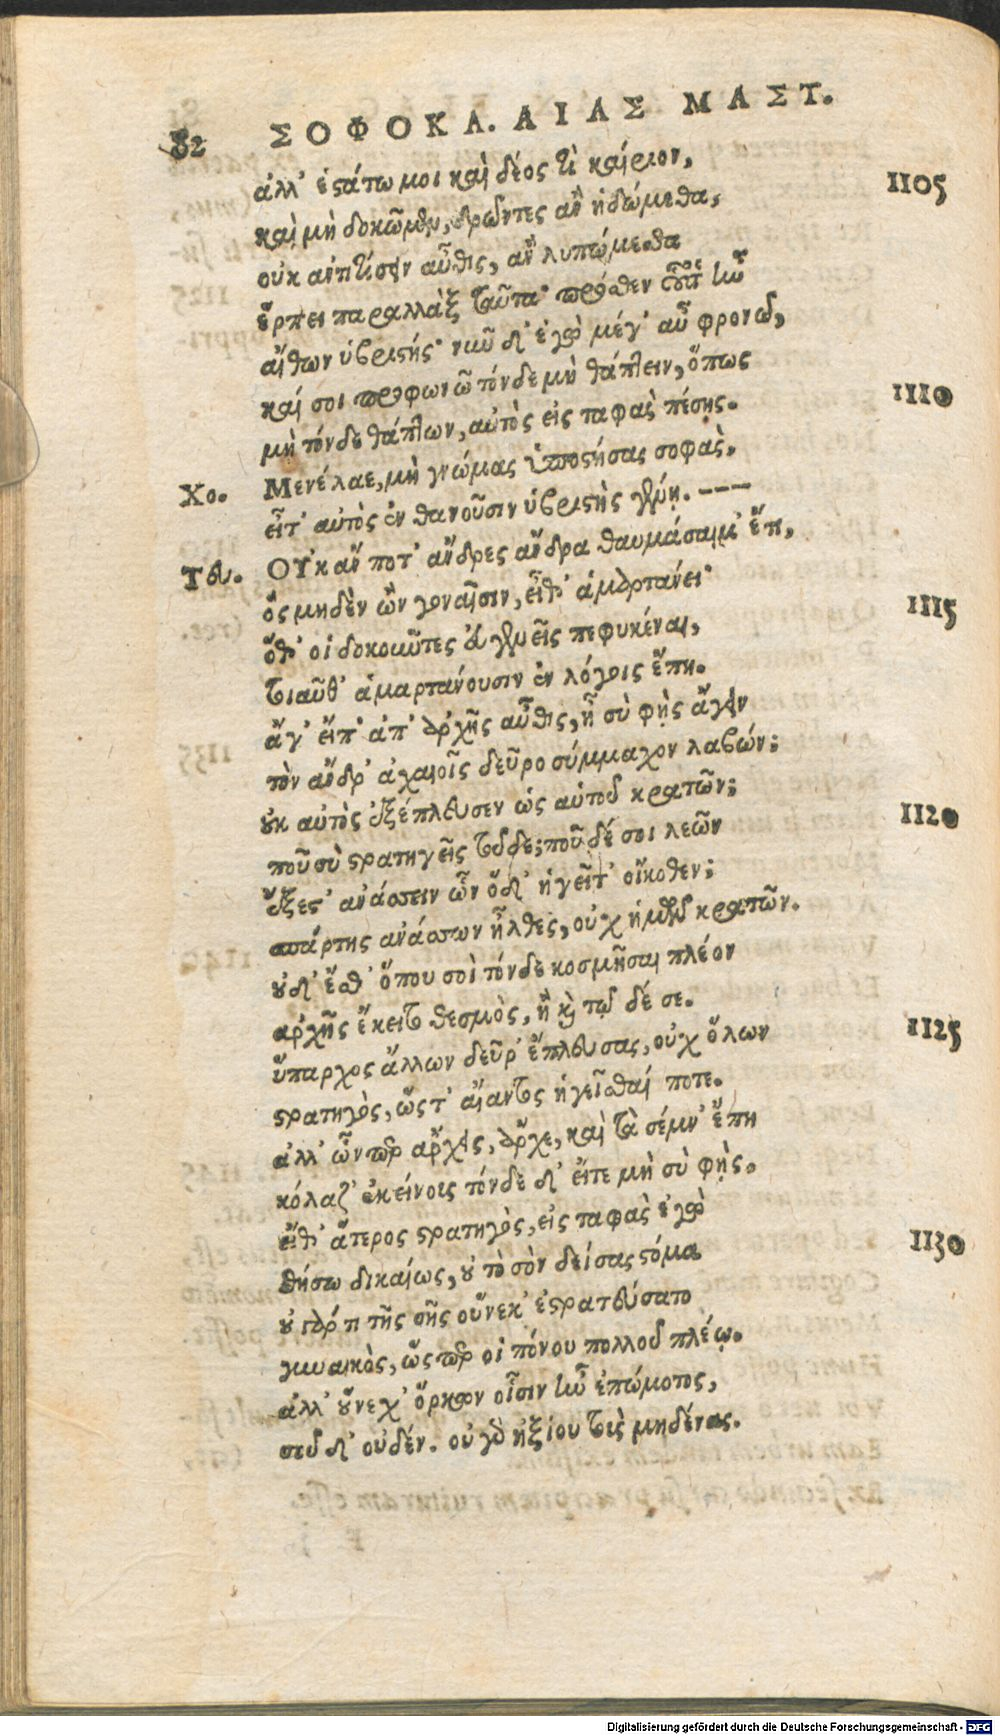 82 ΣΟΦΟΚΛ. ΑΙΑΣ ΜΑΣΤ.
ἀλλ' ἑστάτω μοι καὶ δέος τὶ καίριον,
καὶ μὴ δοκῶμεν, δρῶντες ἂν ἡδώμεθα, 1105
οὐκ ἀντιτίσειν αὖθις, ἂν λυπώμεθα
ἕρπει παραλλὰξ ταῦτα· πρόσθεν οὗτος ἦν
αἴθων ὑβριστής· νῦν δ' ἐγὼ μέγ' αὖ φρονῶ,
καί σοι προφωνῶ τόνδε μὴ θάπτειν, ὅπως
μὴ τόνδε θάπτων, αὐτὸς εἰς ταφὰς πέσῃς. 1110
Χο. Μενέλαε, μὴ γνώμας ὑποστήσας σοφὰς.
εἶτ' αὐτὸς ἐν θανοῦσιν ὑβριστὴς γένῃ. ---
Τευ. Οὐκ ἄν ποτ' ἄνδρες ἄνδρα θαυμάσαιμ' ἔτι,
ὃς μηδὲν ὢν γοναῖσιν, εἶθ' ἁμαρτάνει·
ὅθ' οἱ δοκοῦντες εὐγενεῖς πεφυκέναι, 1115
τοιαῦθ' ἁμαρτάνουσιν ἐν λόγοις ἔπη.
ἄγ' εἴπ' ἀπ' ἀρχῆς αὖθις, ἦ σὺ φῂς ἄγειν
τὸν ἄνδρ' ἀχαιοῖς δεῦρο σύμμαχον λαβών;
οὐκ αὐτὸς ἐξέπλευσεν ὡς αὑτοῦ κρατῶν;
ποῦ σὺ στρατηγεῖς τοῦδε; ποῦ δέ σοι λεῶν 1120
ἔξεστ' ἀνάσσειν ὧν ὅδ' ἡγεῖτ' οἴκοθεν;
σπάρτης ἀνάσσων ἦλθες, οὐχ ἡμῶν κρατῶν.
οὐδ' ἔσθ' ὅπου σοὶ τόνδε κοσμῆσαι πλέον
ἀρχῆς ἔκειτο θεσμὸς, ἢ καὶ τῷδέ σε.
ὕπαρχος ἄλλων δεῦρ' ἔπλευσας, οὐχ ὅλων 1125
στρατηγὸς, ὥστ' αἴαντος ἡγεῖσθαί ποτε.
ἀλλ' ὧνπερ ἄρχεις, ἄρχε, καὶ τὰ σέμν' ἔπη
κόλαζ' ἐκείνοις τόνδε δ' εἴτε μὴ σὺ φῂς.
εἴθ' ἅτερος στρατηγὸς, εἰς ταφὰς ἐγὼ
θήσω δικαίως, οὐ τὸ σὸν δείσας στόμα 1130
οὐ γάρ τι τῆς σῆς οὕνεκ' ἐστρατεύσατο
γυναικὸς, ὥσπερ οἱ πόνου πολλοῦ πλέῳ.
ἀλλ' οὕνεχ' ὅρκων οἷσιν ἦν ἐπώμοτος,
σοῦ δ' οὐδέν. οὐ γὰρ ἠξίου τοὺς μηδένας.
Digitalisierung gefördert durch die Deutsche Forschungsgemeinschaft - DFG